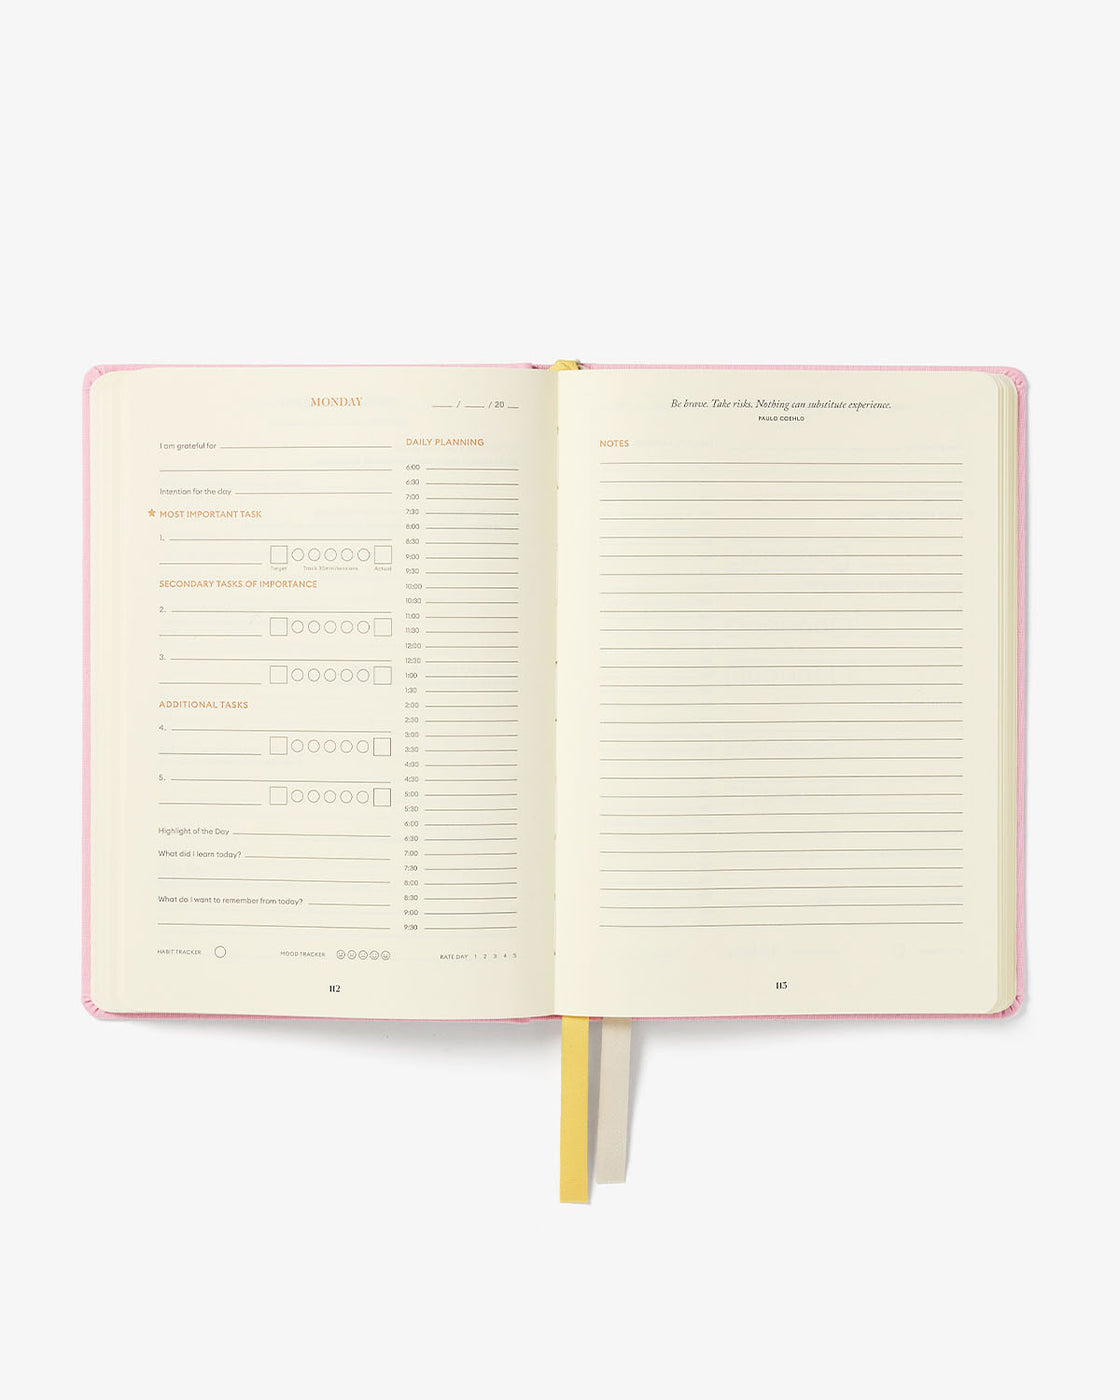 MONDAY
/ / 20
I am grateful for
Intention for the day
MOST IMPORTANT TASK
1.
Target Track 30min/sessions Actual
SECONDARY TASKS OF IMPORTANCE
2.
3.
ADDITIONAL TASKS
4.
5.
Highlight of the Day
What did I learn today?
What do I want to remember from today?
HABIT TRACKER
MOOD TRACKER
DAILY PLANNING
6:00
6:30
7:00
7:30
8:00
8:30
9:00
9:30
10:00
10:30
11:00
11:30
12:00
12:30
1:00
1:30
2:00
2:30
3:00
3:30
4:00
4:30
5:00
5:30
6:00
6:30
7:00
7:30
8:00
8:30
9:00
9:30
RATE DAY 1 2 3 4 5
112
Be brave. Take risks. Nothing can substitute experience.
PAULO COEHLO
NOTES
113